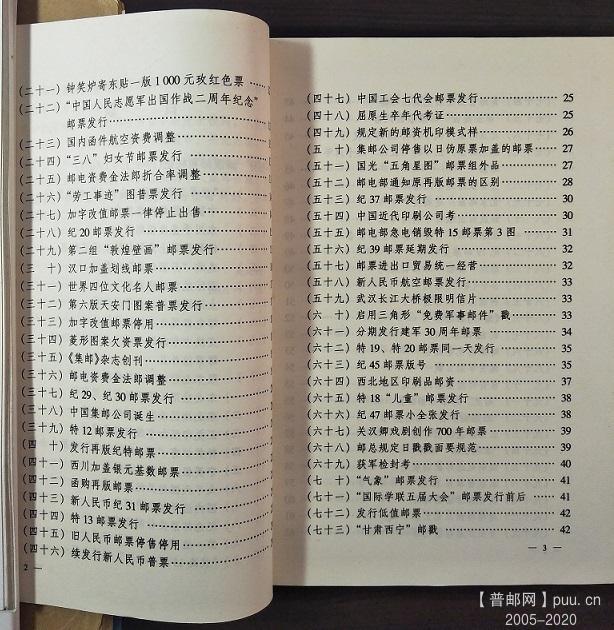 (二十一) 钟笑炉寄东贴一版1000元玫红色票 ……
(二十二) “中国人民志愿军出国作战二周年纪念”
邮票发行……………………
(二十三) 国内函件航空资费调整 ……………
(二十四) “三八”妇女节邮票发行 ……………
(二十五) 邮电资费金法郎折合率调整 …………
(二十六) “劳工事迹”图普票发行 ……………
(二十七) 加字改值邮票一律停止出售 …………
(二十八) 纪20邮票发行 ……………………
(二十九) 第二组“敦煌壁画”邮票发行 ………
(三　十) 汉口加盖划线邮票 …………………
(三十一) 世界四位文化名人邮票 ……………
(三十二) 第六版天安门图案普票发行 …………
(三十三) 加字改值邮票停用 …………………
(三十四) 菱形图案欠资票发行 ………………
(三十五) 《集邮》杂志创刊 …………………
(三十六) 邮电资费金法郎调整 ………………
(三十七) 纪29、纪30邮票发行 ………………
(三十八) 中国集邮公司诞生 …………………
(三十九) 特12邮票发行 ……………………
(四　十) 发行再版纪特邮票 …………………
(四十一) 西川加盖银元基数邮票 ……………
(四十二) 函购再版邮票 ……………………
(四十三) 新人民币纪31邮票发行 ……………
(四十四) 特13邮票发行 ……………………
(四十五) 旧人民币邮票停售停用 ……………
(四十六) 续发行新人民币普票 ………………
2 —
(四十七) 中国工会七代会邮票发行 …………… 25
(四十八) 屈原生卒年代考证 ………………… 25
(四十九) 规定新的邮资机印模式样 …………… 26
(五　十) 集邮公司停售以日伪原票加盖的邮票 …… 27
(五十一) 国光“五角星图”邮票组外品 ………… 27
(五十二) 邮电部通知原再版邮票的区别 ………… 28
(五十三) 纪37邮票发行 …………………… 30
(五十四) 中国近代印刷公司考 ……………… 30
(五十五) 邮电部急电销毁特15邮票第3图 …… 31
(五十六) 纪39邮票延期发行 ………………… 32
(五十七) 邮票进出口贸易统一经营 …………… 32
(五十八) 新人民币航空邮票发行 ……………… 33
(五十九) 武汉长江大桥极限明信片 …………… 33
(六　十) 启用三角形“免费军事邮件”戳 ……… 33
(六十一) 分期发行建军30周年邮票 …………… 34
(六十二) 特19、特20邮票同一天发行 ………… 35
(六十三) 纪45邮票版号 …………………… 35
(六十四) 西北地区印刷品邮资 ……………… 37
(六十五) 特18“儿童”邮票发行 ……………… 38
(六十六) 纪47邮票小全张发行 ……………… 38
(六十七) 关汉卿戏剧创作700年邮票 ………… 39
(六十八) 邮总规定日戳戳面要规范 …………… 39
(六十九) 获军检封考 ……………………… 40
(七　十) “气象”邮票发行 ………………… 41
(七十一) “国际学联五届大会”邮票发行前后 …… 41
(七十二) 发行低值邮票 …………………… 42
(七十三) “甘肃西宁”邮戳 ………………… 42
— 3 —
【普邮网】puu.cn
2005-2020